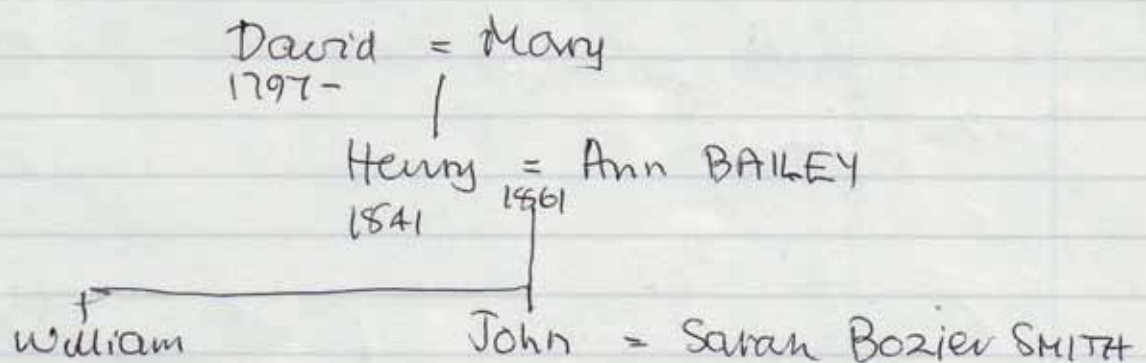 David = Mary
1797-
Henry = Ann BAILEY
1841 1861
William John = Sarah Bozier SMITH